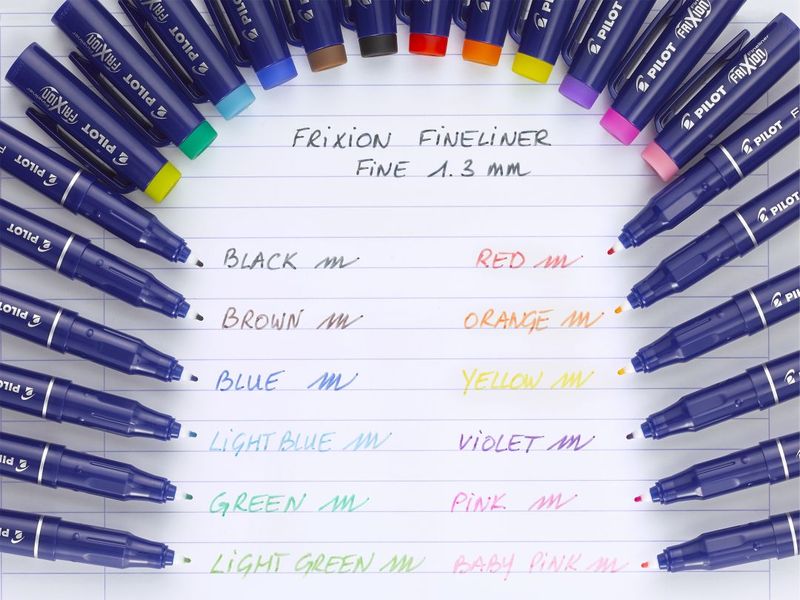 FRiXiON FiNELiNER
FiNE 1.3 mm
BLACK
BROWN
BLUE
LiGHT BLUE
GREEN
LiGHT GREEN
RED
ORANGE
YELLOW
ViOLET
PiNK
BABY PiNK
PILOT FRIXION
PILOT FRIXION
PILOT FRIXION
PILOT
PILOT
PILOT
PILOT FRIXION
PILOT FRIXION
PILOT
PILOT
PILOT
PILOT
PILOT
PILOT
PILOT
PILOT
PILOT
PILOT
PILOT